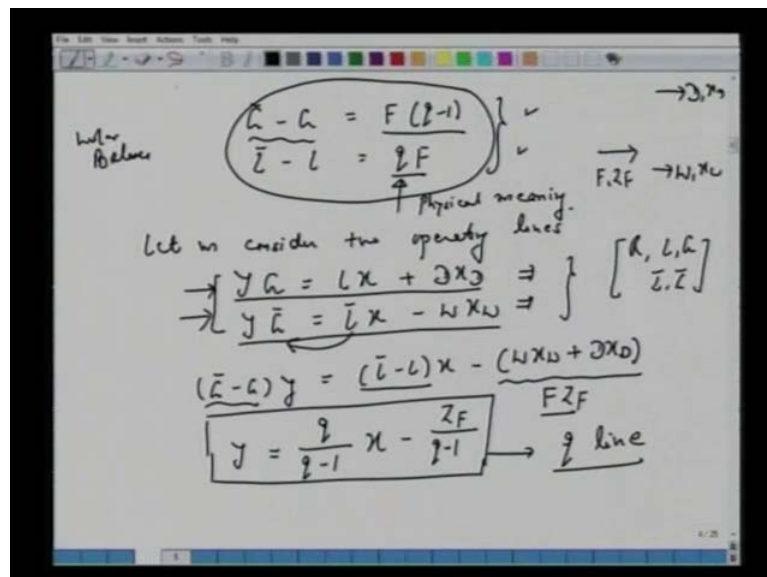 File Edit View Insert Actions Tools Help
→D, x_D
Ḡ - G = F(q-1)
Balance
L̄ - L = qF
F, z_F → W, x_W
Physical meaning.
Let us consider two operating lines
yG = Lx + Dx_D ⇒
[R, L, G
yḠ = L̄x - Wx_W ⇒
(Ḡ-G)y = (L̄-L)x - (Wx_W + Dx_D)
Fz_F
y = q/(q-1) x - z_F/(q-1) → q line